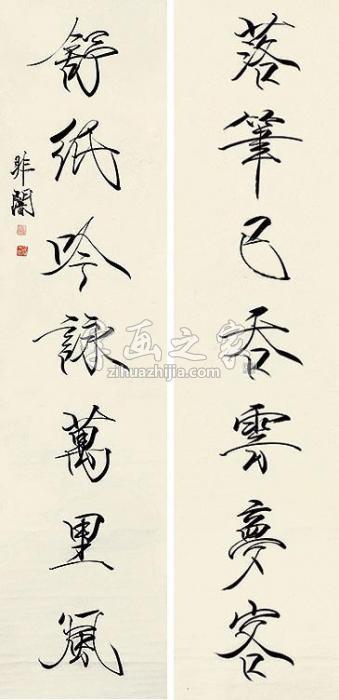 落筆已吞雲夢客
舒紙吟詠萬里風
非闇
字画之家
zihuazhijia.com